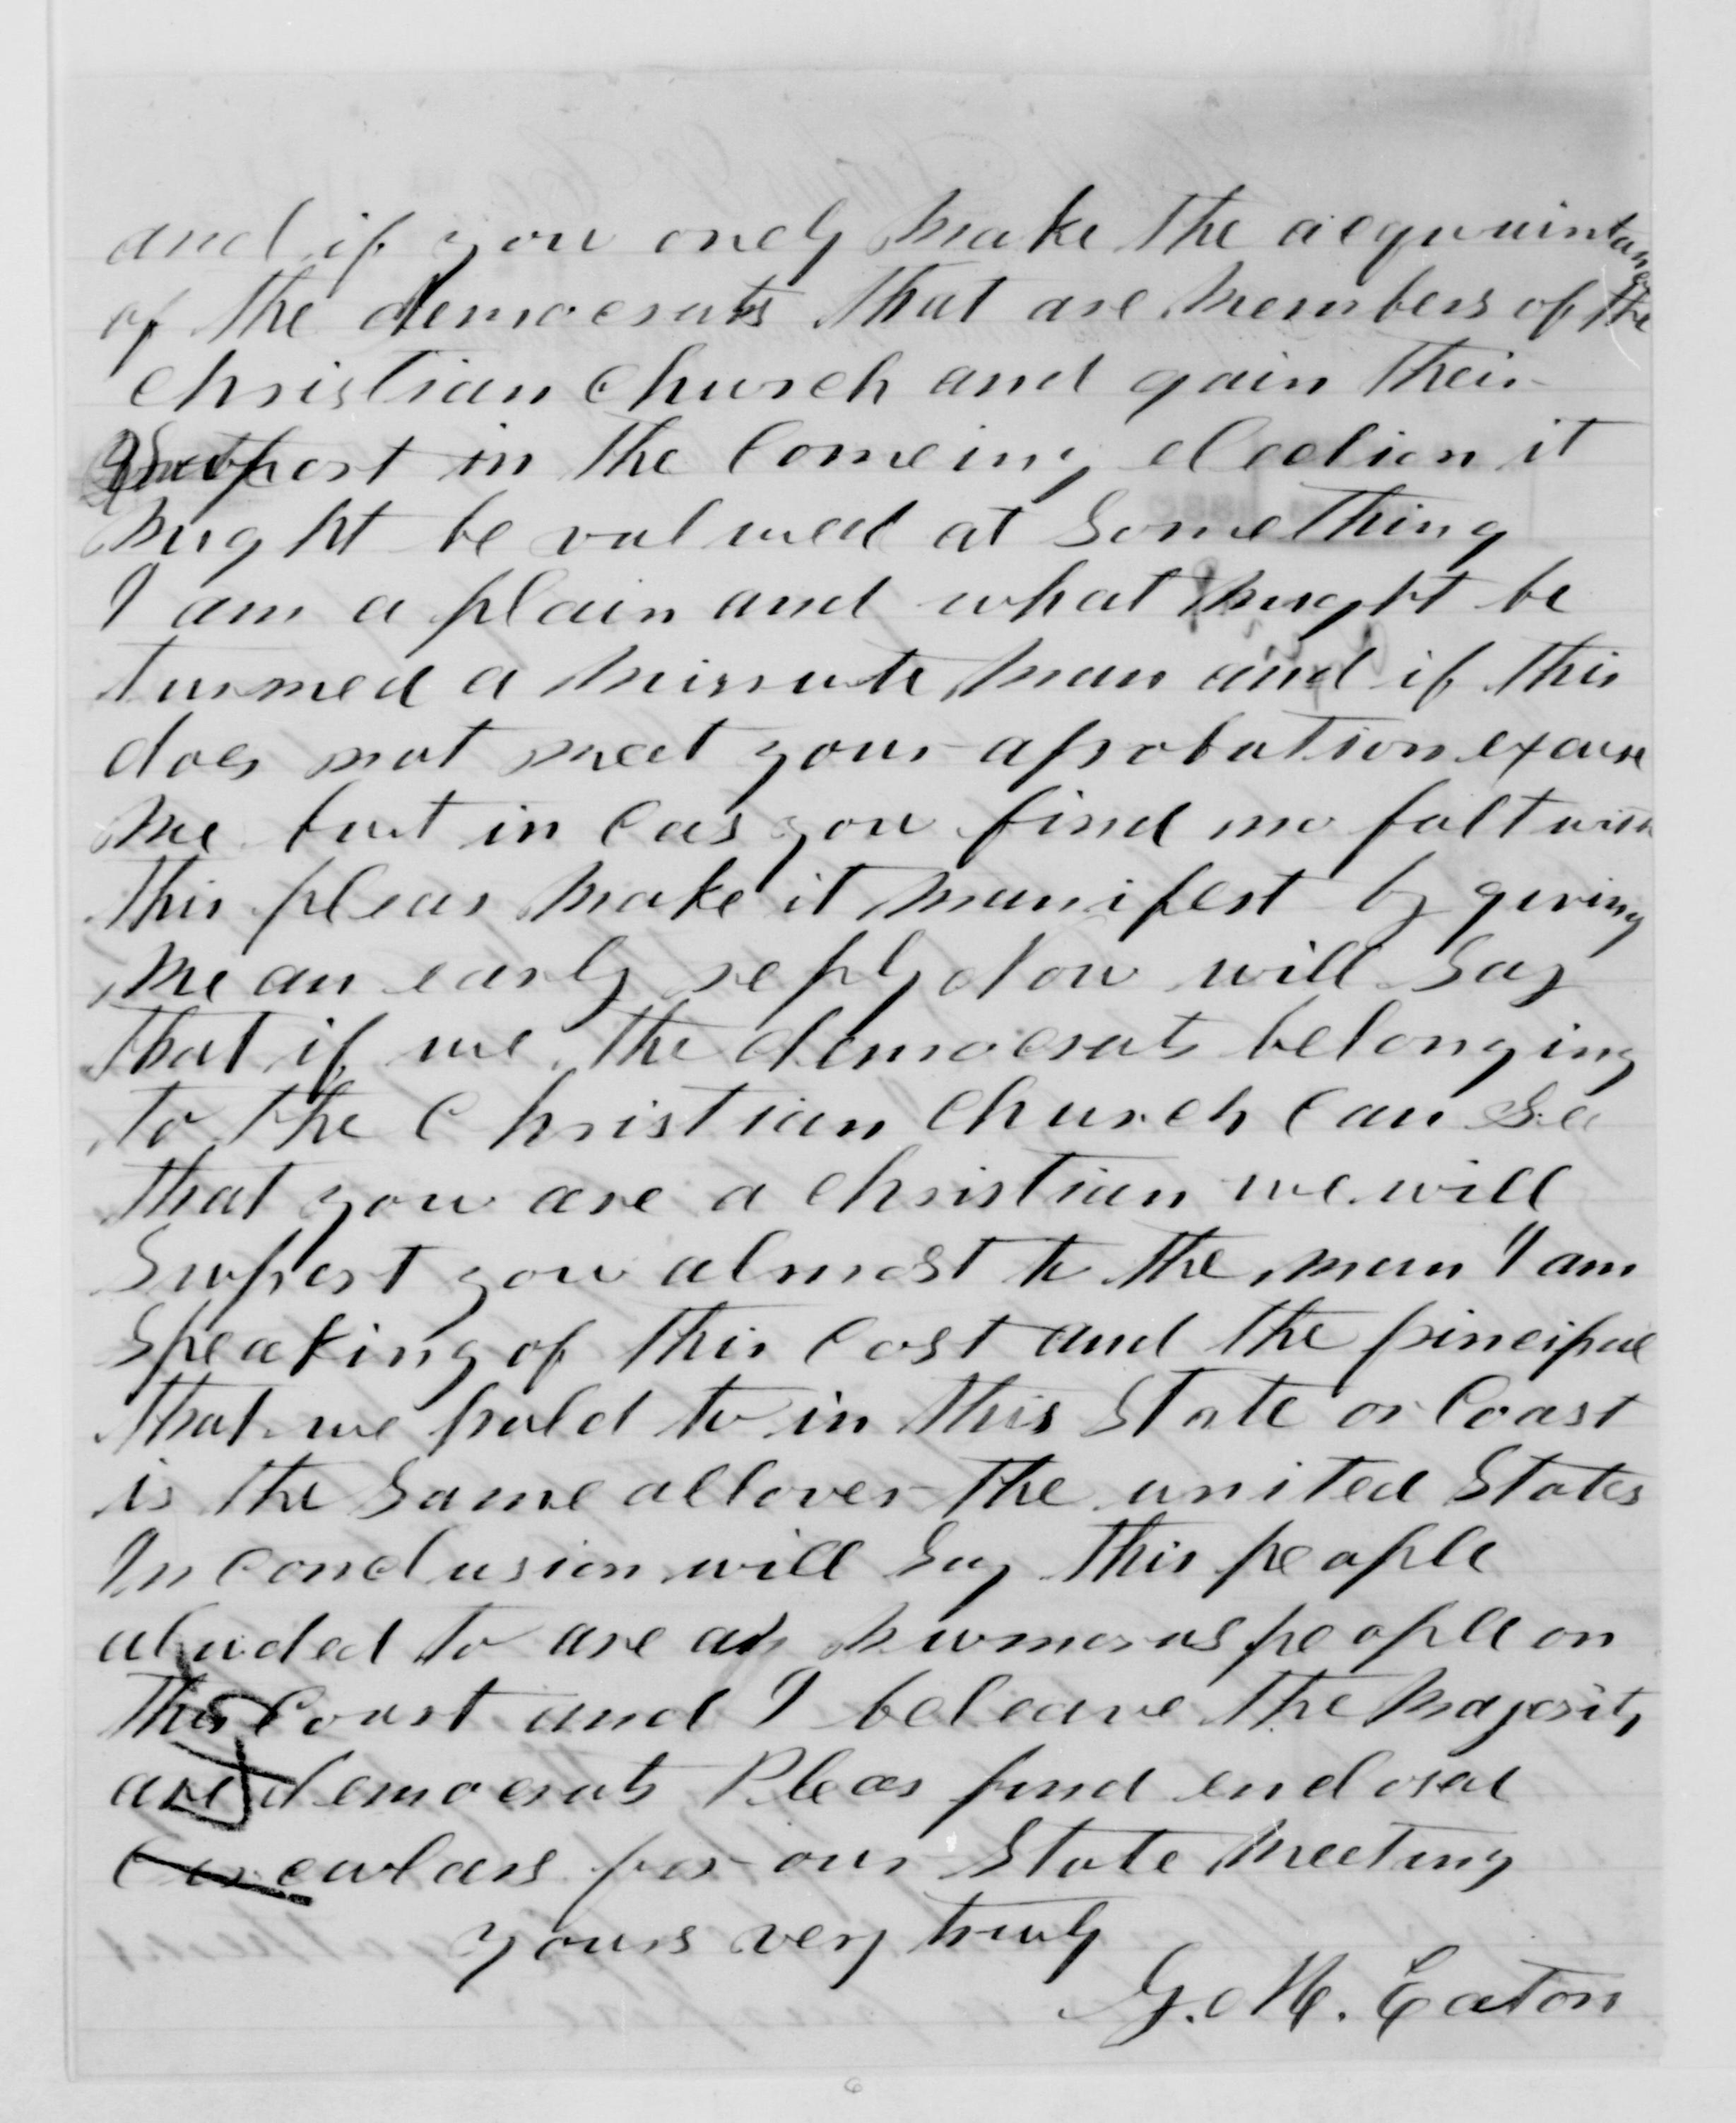 and if you only make the acquaintance
of the democrats that are members of the
Christian Church and gain their
Support in the Comeing election it
might be valued at Something
I am a plain and what might be
turmed a minute man and if this
does not meet your aprobation excuse
me but in cas you find no falt with
this pleas make it manifest by giving
me an early reply Now will Say
that if we the democrats belonging
to the Christian Church Can Se
that you are a Christian we will
Suport you almost to the man I am
Speaking of this Cost and the principal
that we hold to in this State or Coast
is the Same all over the united States
In Conclusion will Say this people
aluded to are a numerous people on
this Coast and I beleave the Majority
are democrats Pleas find enclosed
Circulars for our State Meeting
yours very truly
G. M. Eaton
6